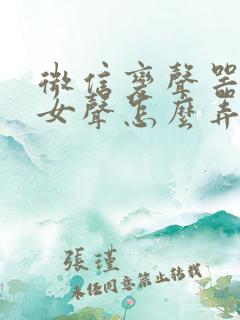 微信變聲器
女聲怎麼弄
張瑾
未經同意禁止轉載